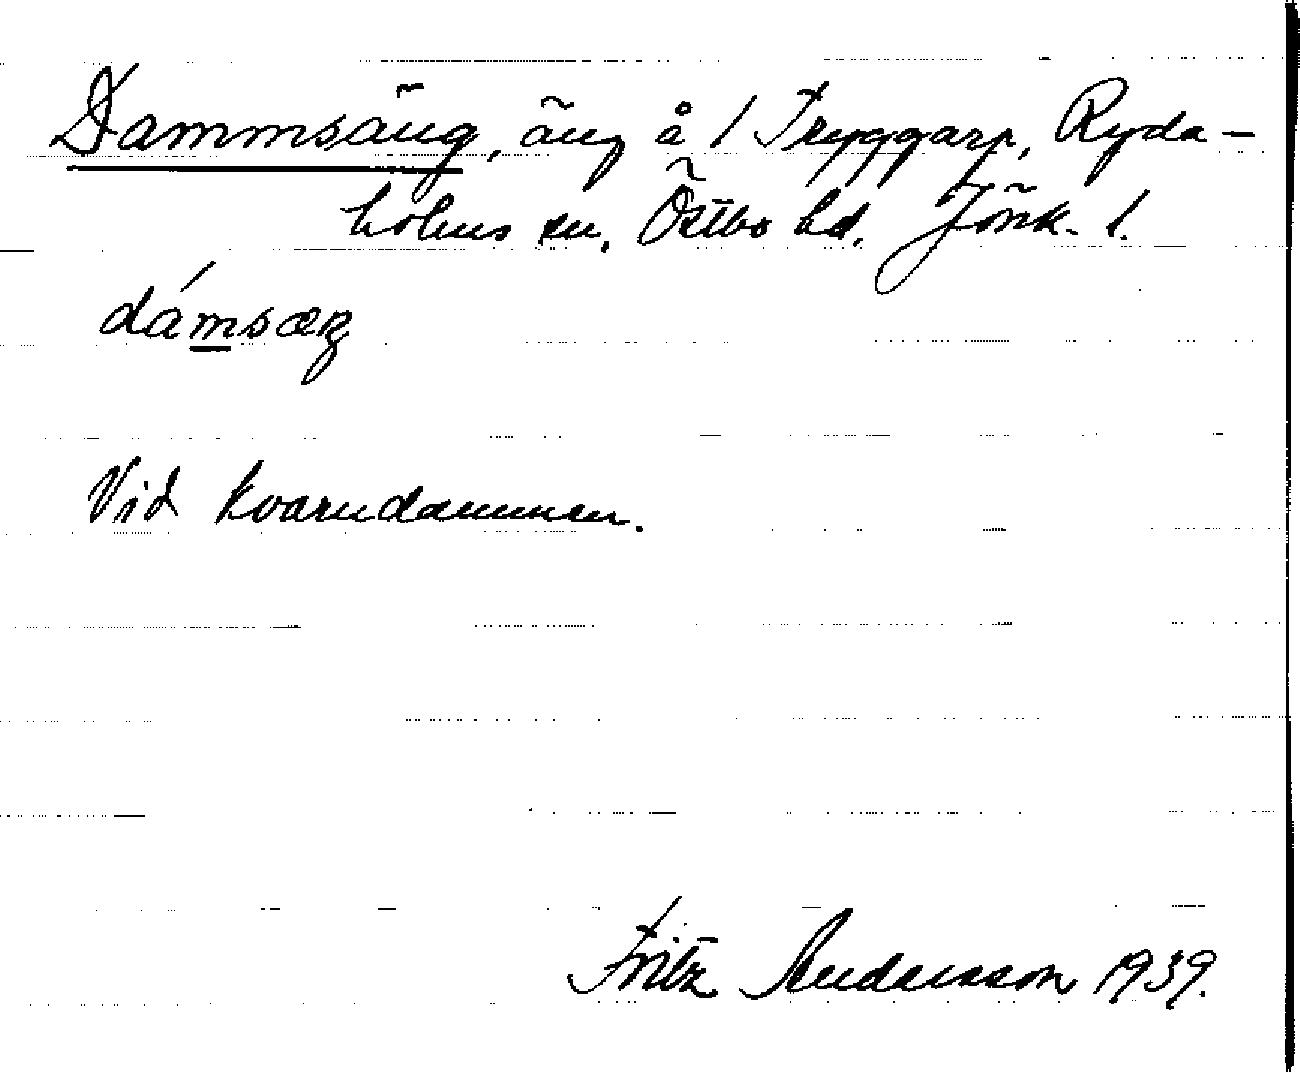 Dammsäng, äng å 1 Tryggarp, Ryda-
holms sn, Östbo hd, Jönk. l.
dámsæŋ
Vid kvarndammen.
Fritz Andersson 1939.